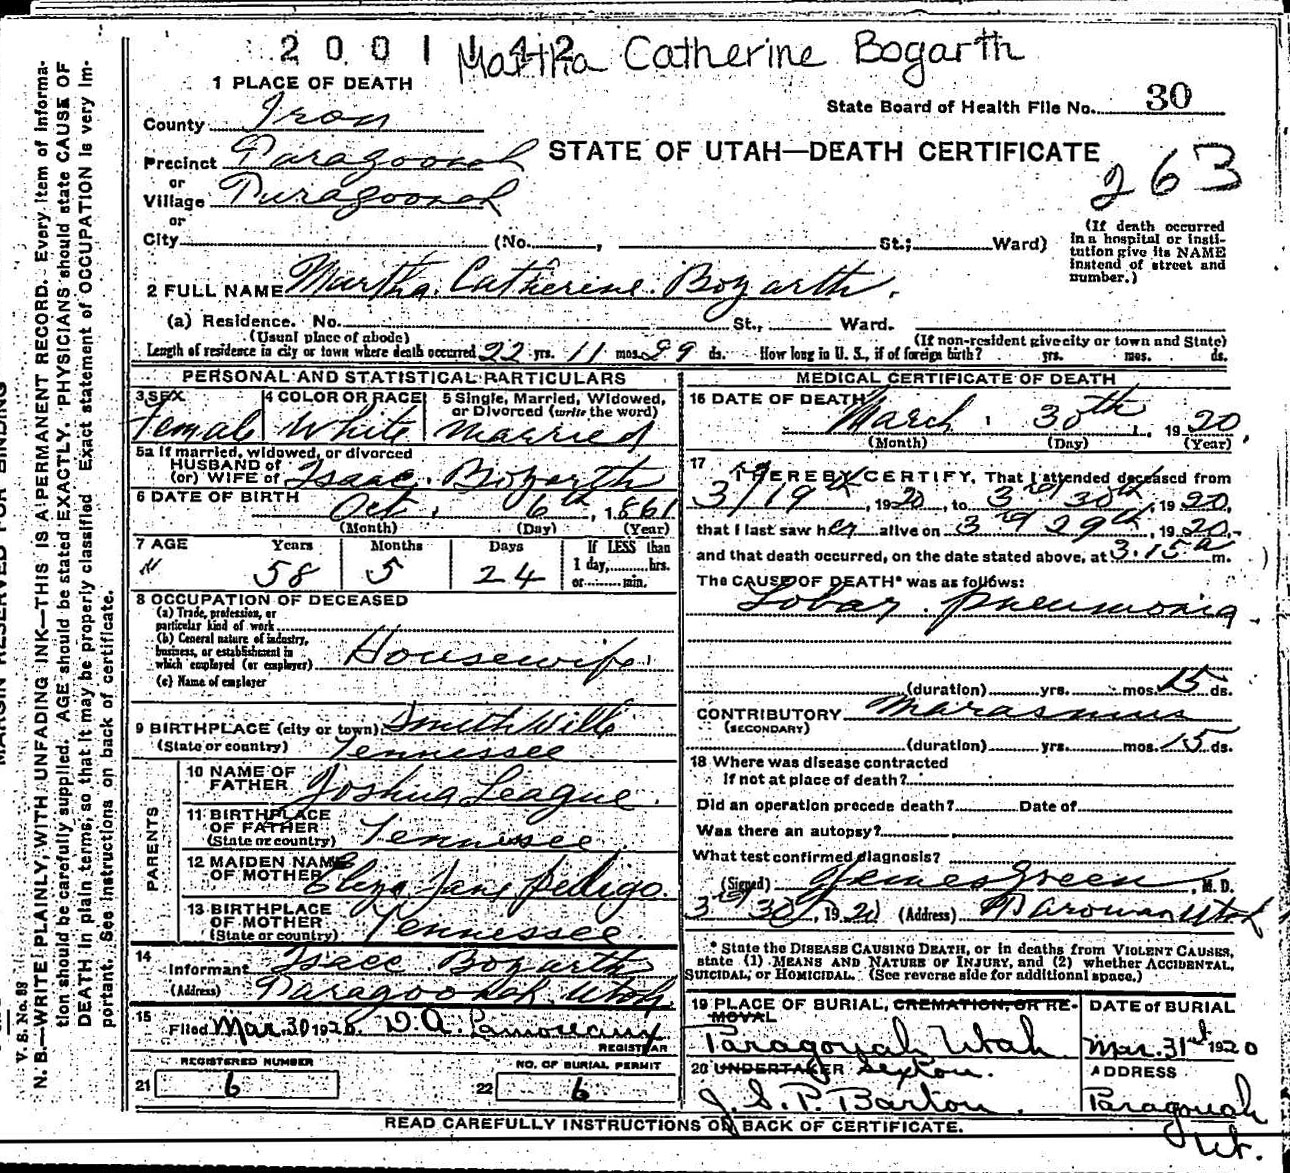 2001142
Martha Catherine Bogarth
1 PLACE OF DEATH
State Board of Health File No. 30
County Iron
STATE OF UTAH—DEATH CERTIFICATE
263
Precinct Paragoonah
or
Village Paragoonah
or
City (No. , St.; Ward)
(If death occurred in a hospital or insti-
tution give its NAME
instead of street and
number.)
2 FULL NAME Martha Catherine Bozarth
(a) Residence. No. St., Ward.
(Usual place of abode) (If non-resident give city or town and State)
Length of residence in city or town where death occurred 22 yrs. 11 mos. 29 ds. How long in U. S., if of foreign birth? yrs. mos. ds.
PERSONAL AND STATISTICAL PARTICULARS
3 SEX 4 COLOR OR RACE 5 Single, Married, Widowed,
or Divorced (write the word)
Female White Married
5a If married, widowed, or divorced
HUSBAND of
(or) WIFE of Isaac Bozarth
6 DATE OF BIRTH Oct. 6th, 1861
(Month) (Day) (Year)
7 AGE Years Months Days If LESS than
1 day, hrs.
or min.
" 58 5 24
8 OCCUPATION OF DECEASED
(a) Trade, profession, or
particular kind of work
(b) General nature of industry,
business, or establishment in
which employed (or employer) Housewife
(c) Name of employer
9 BIRTHPLACE (city or town) Smith Ville
(State or country) Tennessee
PARENTS
10 NAME OF
FATHER Joshua League
11 BIRTHPLACE
OF FATHER
(State or country) Tennessee
12 MAIDEN NAME
OF MOTHER Eliza Jane Pedigo
13 BIRTHPLACE
OF MOTHER
(State or country) Tennessee
14
Informant Isaac Bozarth
(Address) Paragoonah Utah
15
Filed Mar. 30 1920 D.A. Lamoreaux
REGISTRAR
REGISTERED NUMBER NO. OF BURIAL PERMIT
21 6 22 6
MEDICAL CERTIFICATE OF DEATH
16 DATE OF DEATH
March 30th, 1920
(Month) (Day) (Year)
17
I HEREBY CERTIFY, That I attended deceased from
3/19th, 1920, to 3rd 30th, 1920,
that I last saw her alive on 3rd 29th, 1920
and that death occurred, on the date stated above, at 3.15 a m.
The CAUSE OF DEATH* was as follows:
Lobar pneumonia
(duration) yrs. mos. 15 ds.
CONTRIBUTORY Marasmus
(SECONDARY)
(duration) yrs. mos. 15 ds.
18 Where was disease contracted
if not at place of death?
Did an operation precede death? Date of
Was there an autopsy?
What test confirmed diagnosis?
(Signed) James Green, M. D.
3rd 30, 1920 (Address) Parowan Utah
* State the DISEASE CAUSING DEATH, or in deaths from VIOLENT CAUSES,
state (1) MEANS AND NATURE OF INJURY, and (2) whether ACCIDENTAL,
SUICIDAL, or HOMICIDAL. (See reverse side for additional space.)
19 PLACE OF BURIAL, CREMATION, OR RE-
MOVAL
DATE OF BURIAL
Paragonah Utah Mar. 31st 1920
20 UNDERTAKER Sexton. ADDRESS
J. S. P. Barton. Paragonah
Ut.
READ CAREFULLY INSTRUCTIONS ON BACK OF CERTIFICATE.
MARGIN RESERVED FOR BINDING
V. S. No. 88
N. B.—WRITE PLAINLY, WITH UNFADING INK—THIS IS A PERMANENT RECORD. Every item of informa-
tion should be carefully supplied. AGE should be stated EXACTLY. PHYSICIANS should state CAUSE OF
DEATH in plain terms, so that it may be properly classified. Exact statement of OCCUPATION is very im-
portant. See instructions on back of certificate.